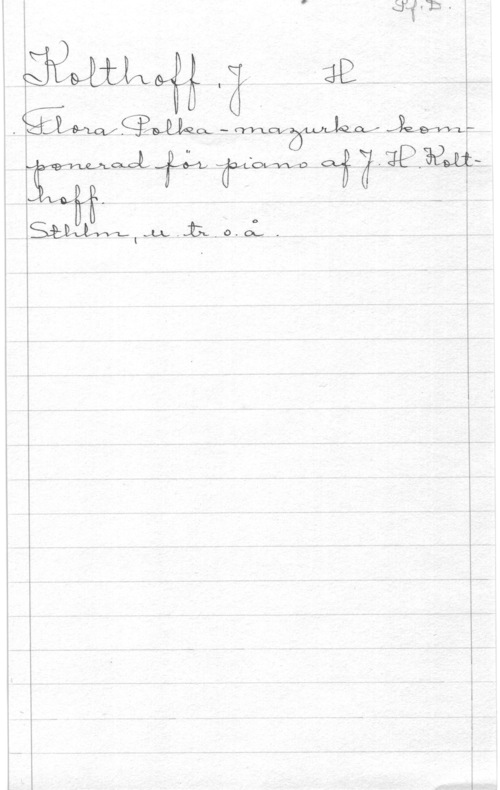 Pf. D.
Kolthoff, J H
Flora Polka-mazurka kom-
ponerad för piano af J. H. Kolt-
hoff.
Sthlm, u. tr. o. å.